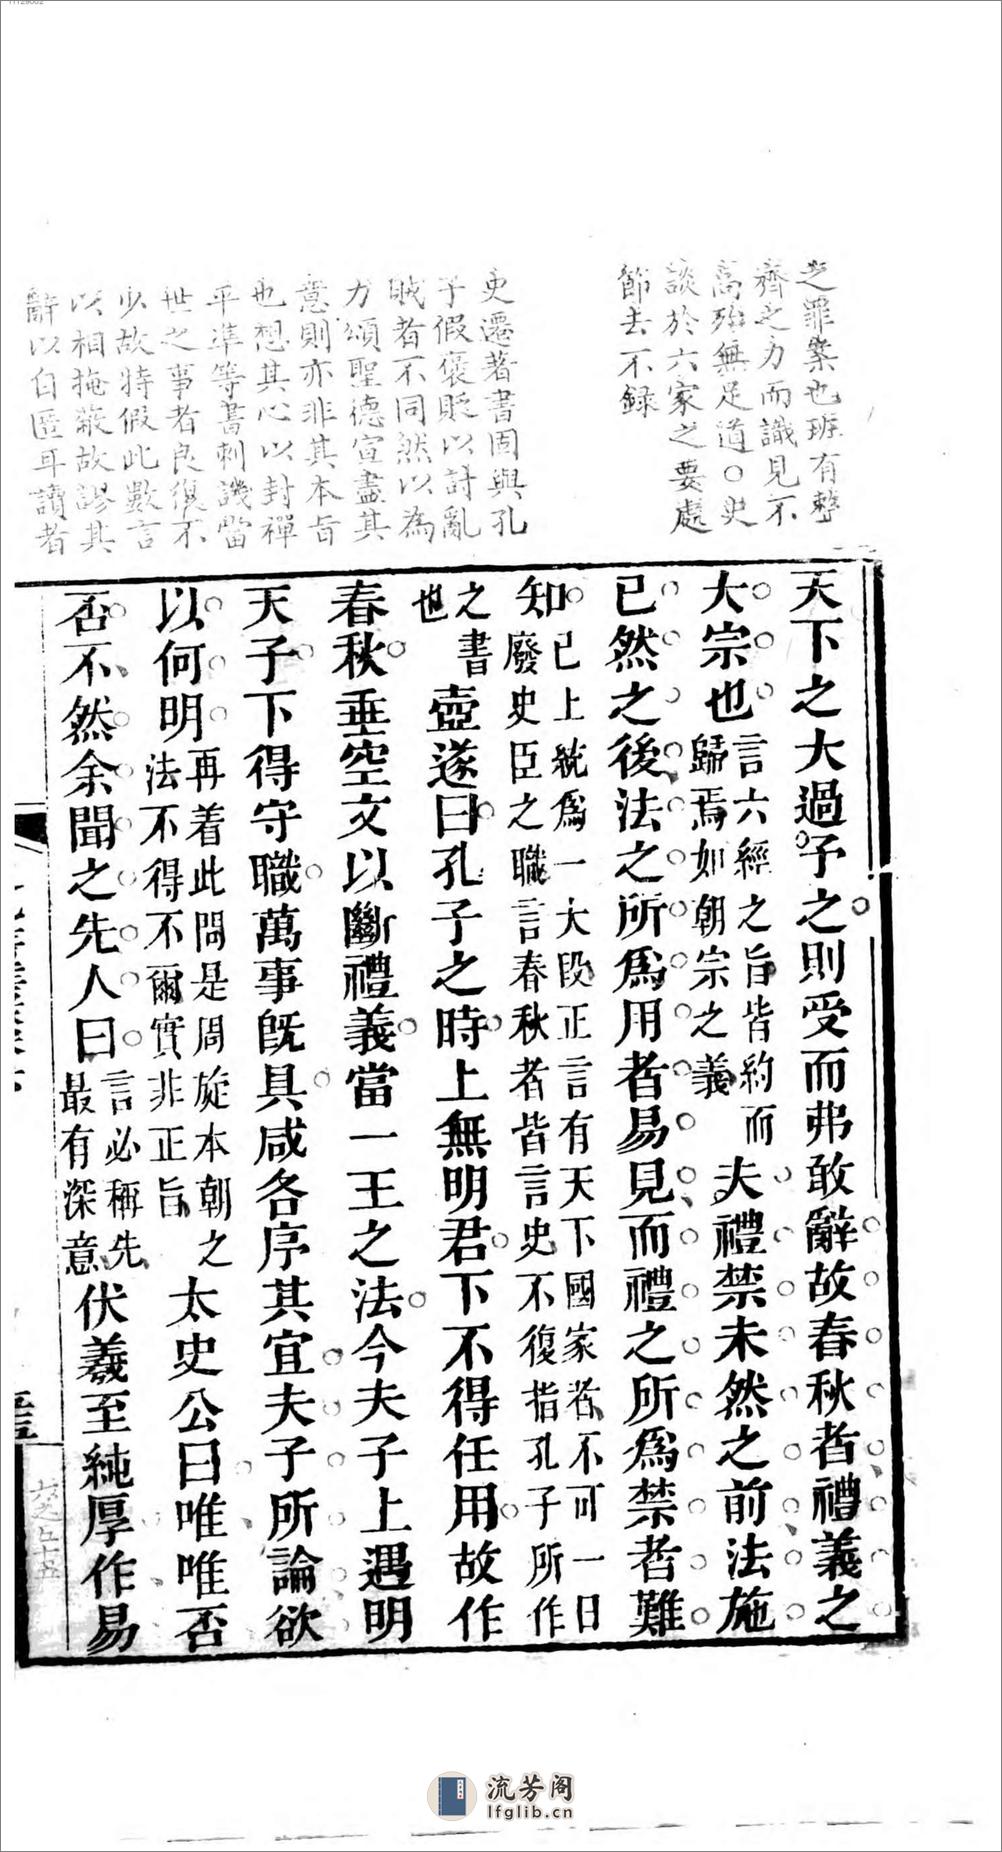 之罪案也班有整
齊之力而識見不
高殆無足道○史
談於六家之要處
節去不錄
史遷著書固與孔
子假褒貶以討亂
賊者不同然以為
力頌聖德宣盡其
意則亦非其本旨
也想其心以封禪
平準等書刺譏當
世之事者良復不
少故特假此數言
以相掩蔽故謬其
辭以自匿耳讀者
天下之大過予之則受而弗敢辭故春秋者禮義之
大宗也言六經之旨皆約而歸焉如朝宗之義夫禮禁未然之前法施
已然之後法之所為用者易見而禮之所為禁者難
知已上統為一大段正言有天下國家者不可一日廢史臣之職言春秋者皆言史不復指孔子所作
之書也壺遂曰孔子之時上無明君下不得任用故作
春秋垂空文以斷禮義當一王之法今夫子上遇明
天子下得守職萬事既具咸各序其宜夫子所論欲
以何明再着此問是周旋本朝之法不得不爾實非正旨太史公曰唯唯否
否不然余聞之先人曰言必稱先最有深意伏羲至純厚作易
六之五十五
流芳阁
lfglib.cn